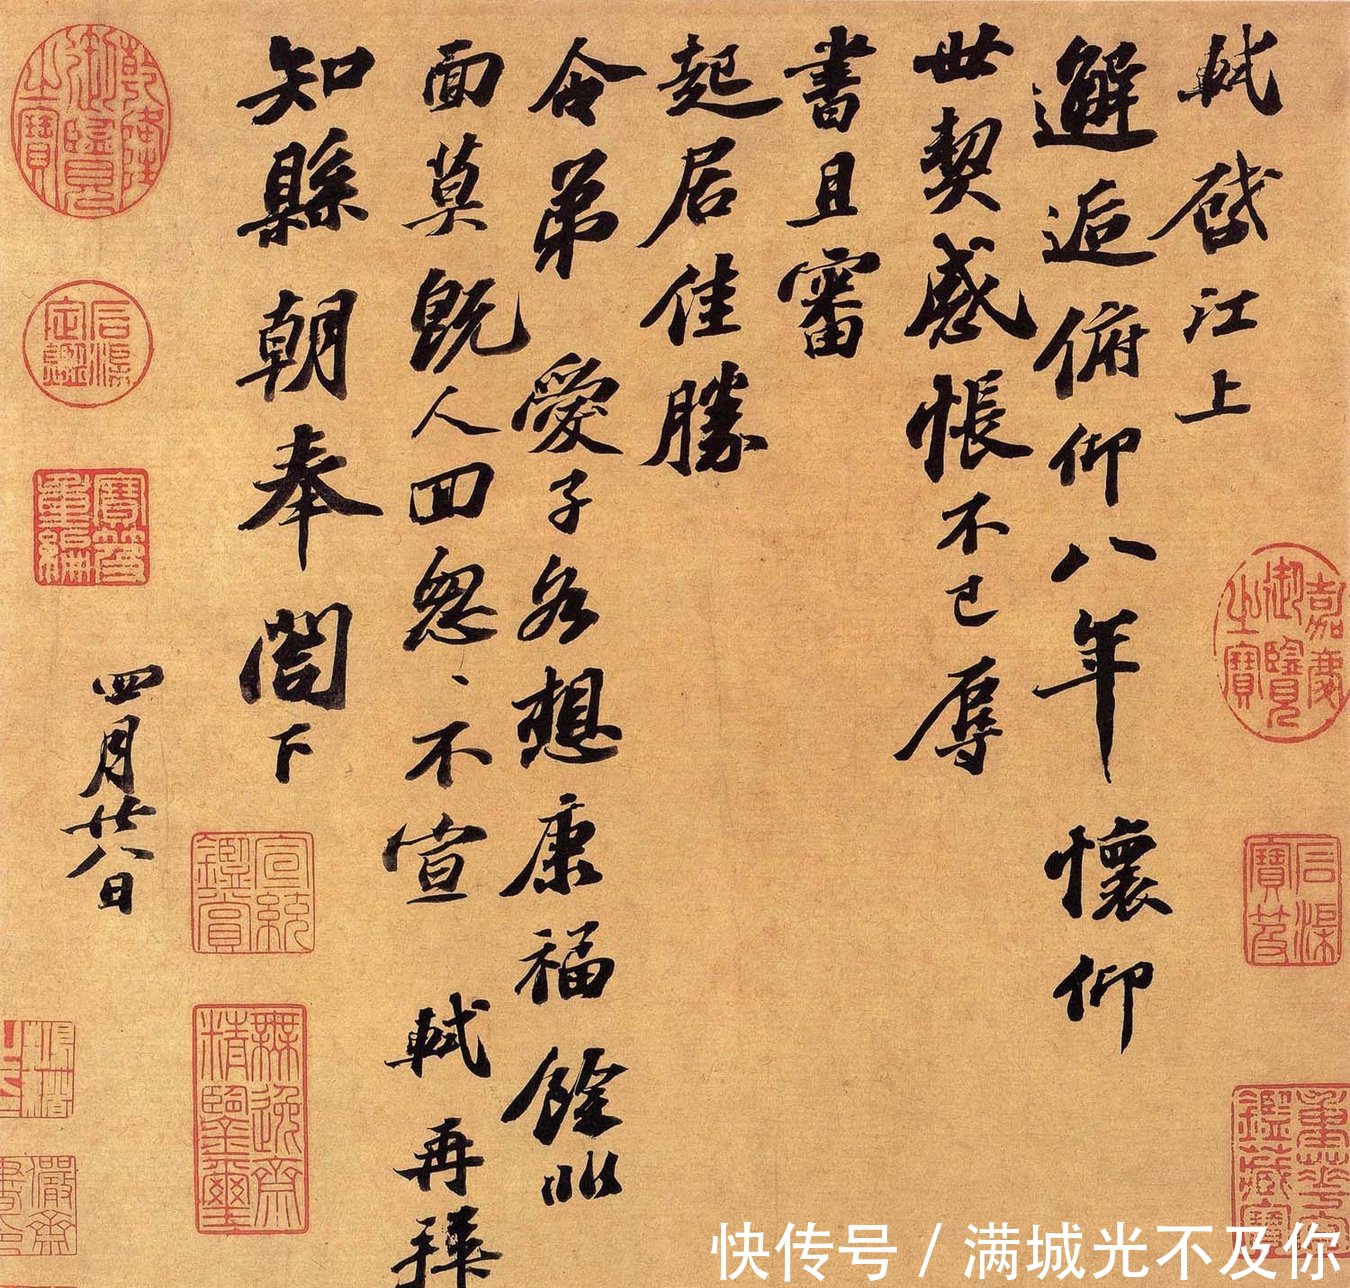 軾啓江上
邂逅俯仰八年懷仰
世契感悵不已辱
書且審
起居佳勝
令弟愛子各想康福餘非
面莫既人回怱、不宣 軾再拜
知縣朝奉閤下
四月廿八日
嘉慶御覽之寶
石渠寶笈
重華宮鑑藏寶
宣統鑑賞
無逸齋精鑒璽
乾隆御覽之寶
石渠定鑑
寶笈重編
快传号 / 满城光不及你